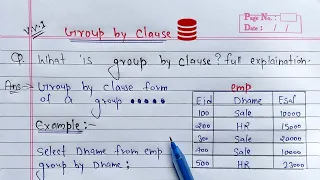 V.V.I
Group by Clause
Page No.:
Date: / /
Q. What is group by clause? full explaination.
Ans:- Group by clause form
of a group .....
Example:-
Select Dname from emp
group by Dname;
emp
Eid Dname Esal
100 Sale 10000
200 HR 15000
300 Sale 20000
400 Sale 10000
500 HR 23000